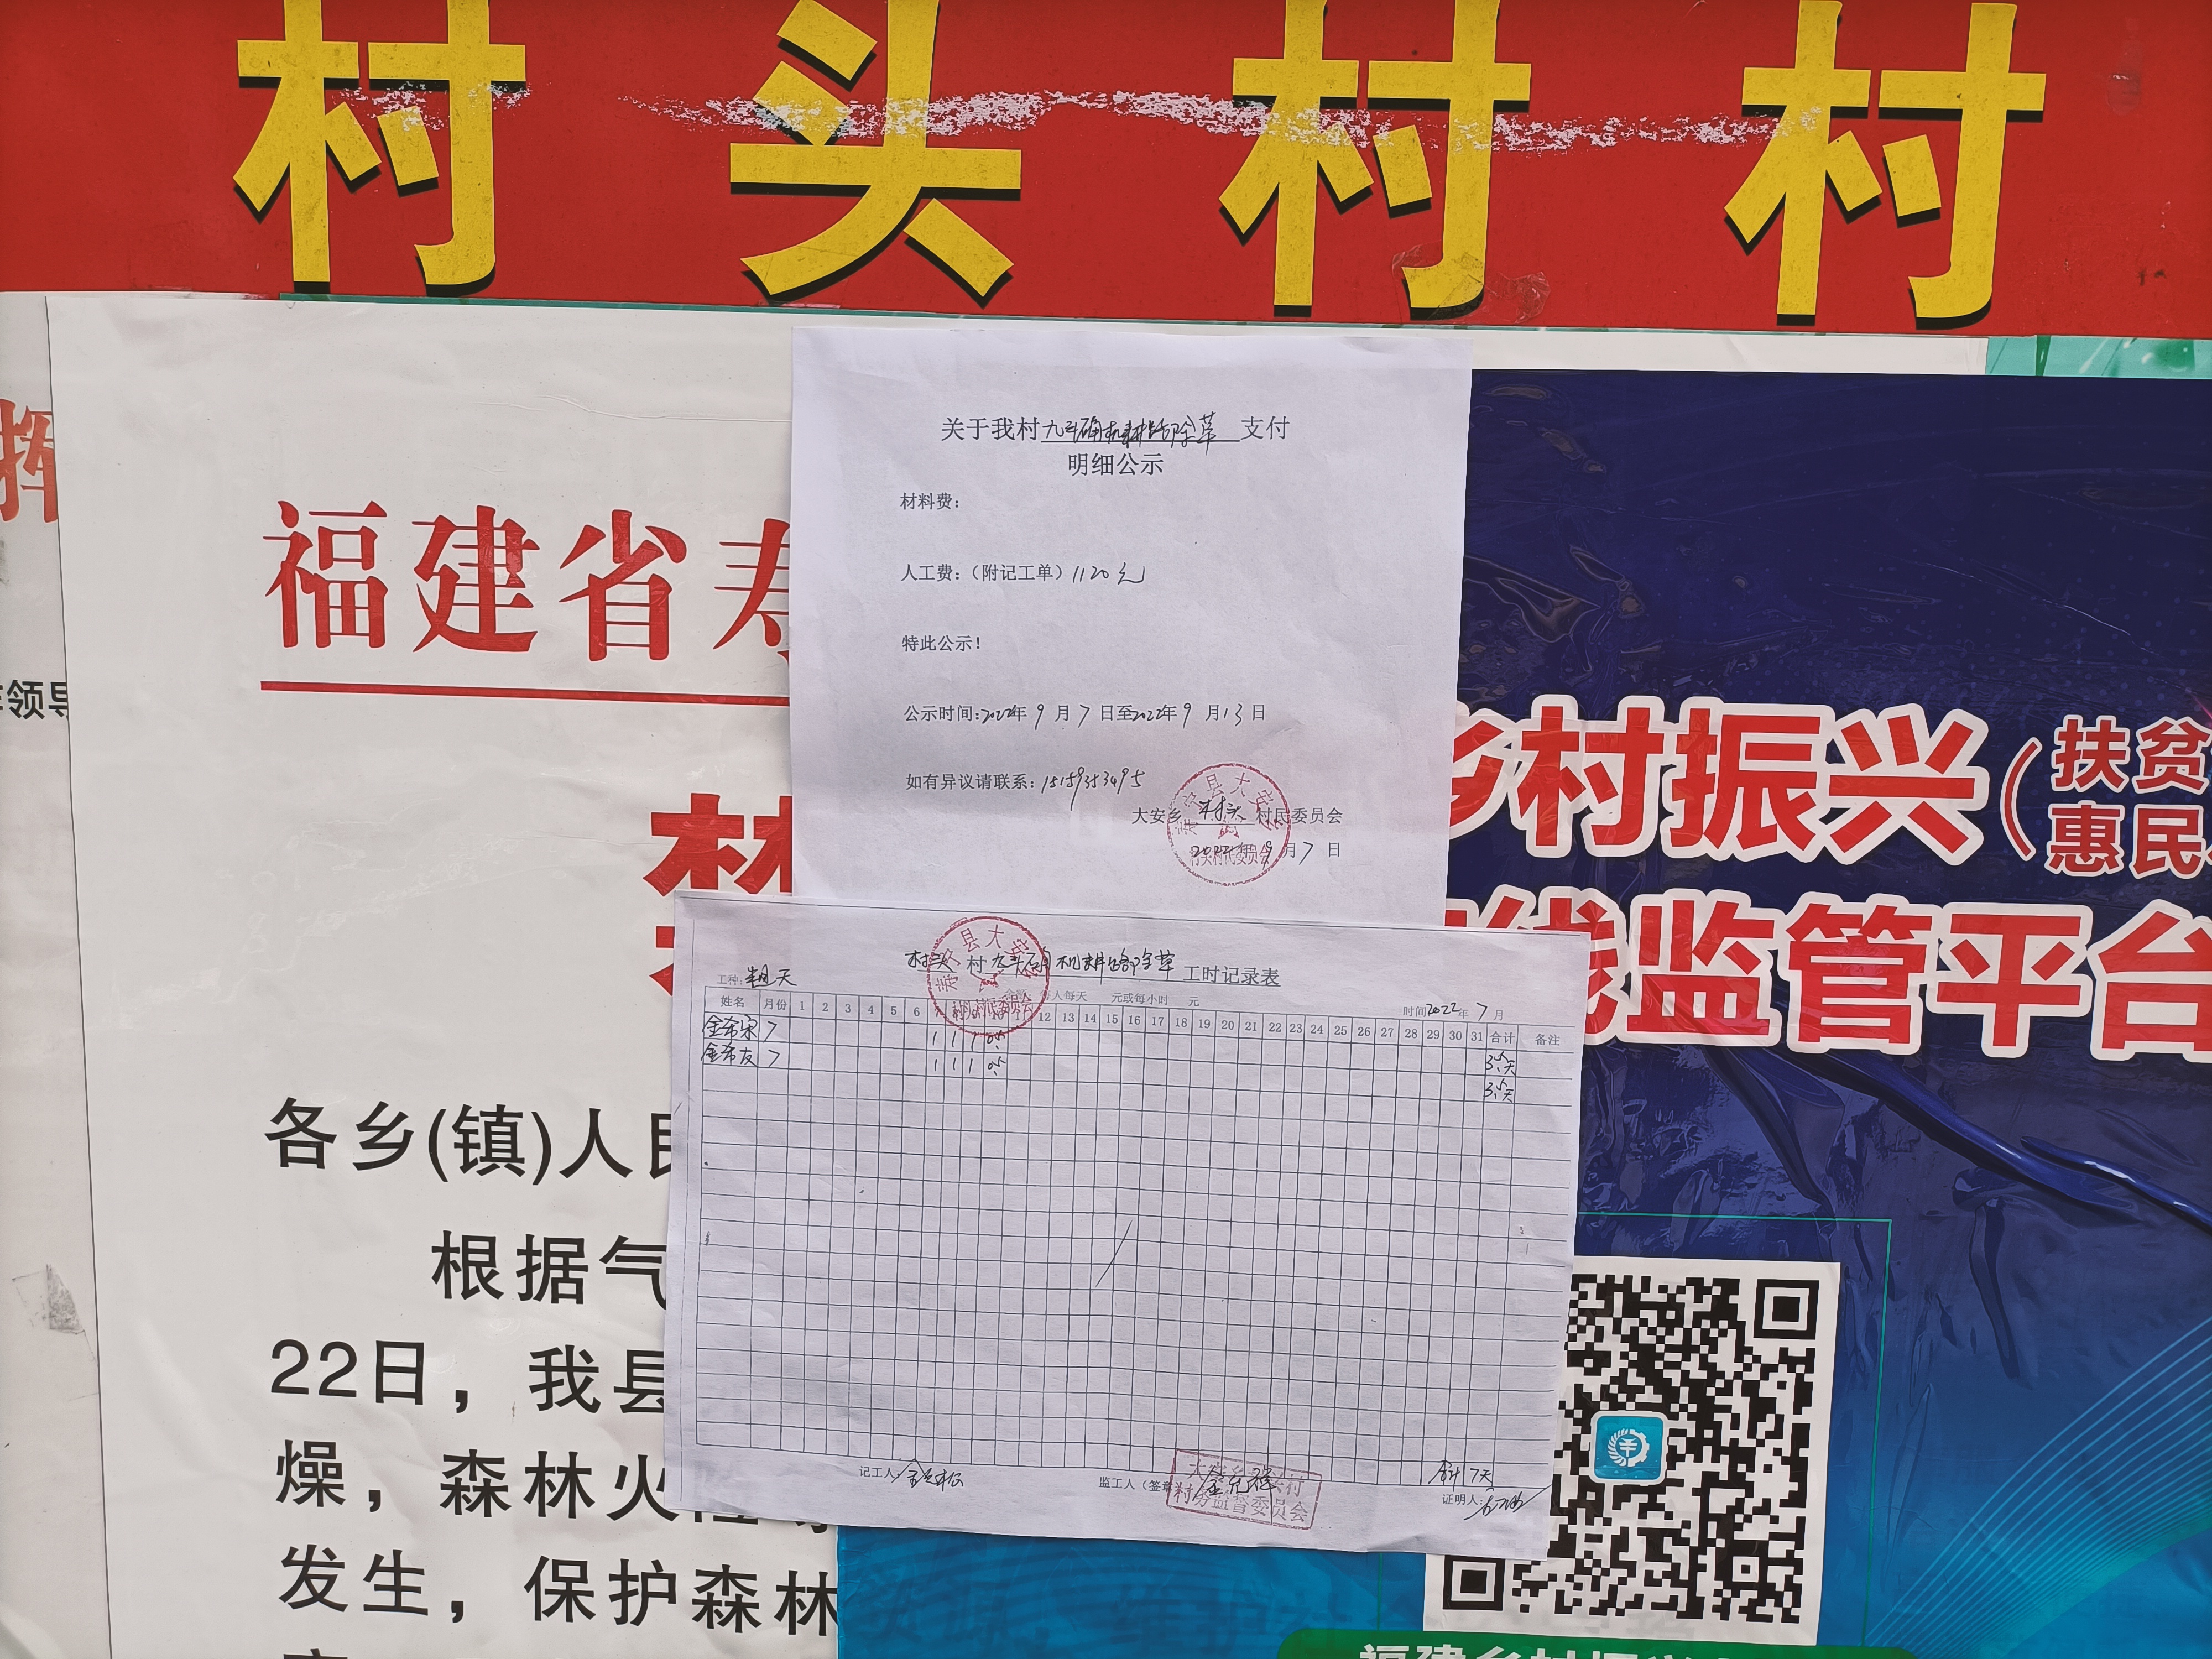 村头村村
挥
福建省寿
领导
各乡(镇)人民
根据气
22日，我县
燥，森林火险
发生，保护森林
关于我村九斗硋机耕路除草支付
明细公示
材料费：
人工费：（附记工单）1120元
特此公示！
公示时间：2022年9月7日至2022年9月13日
如有异议请联系：15159353495
大安乡村头村民委员会
2022年9月7日
寿宁县大安乡
村头村民委员会
村头村九斗硋机耕路除草工时记录表
工种：
每人每天 元或每小时 元
时间2022年7月
姓名 月份 1 2 3 4 5 6 7 8 9 10 11 12 13 14 15 16 17 18 19 20 21 22 23 24 25 26 27 28 29 30 31 合计 备注
金希宋 7 1 1 1 0.5 3.5天
金希友 7 1 1 1 0.5 3.5天
合计7天
记工人：
监工人（签章）
村务监督委员会
证明人：
乡村振兴（扶贫
惠民
在线监管平台
福建乡村振兴